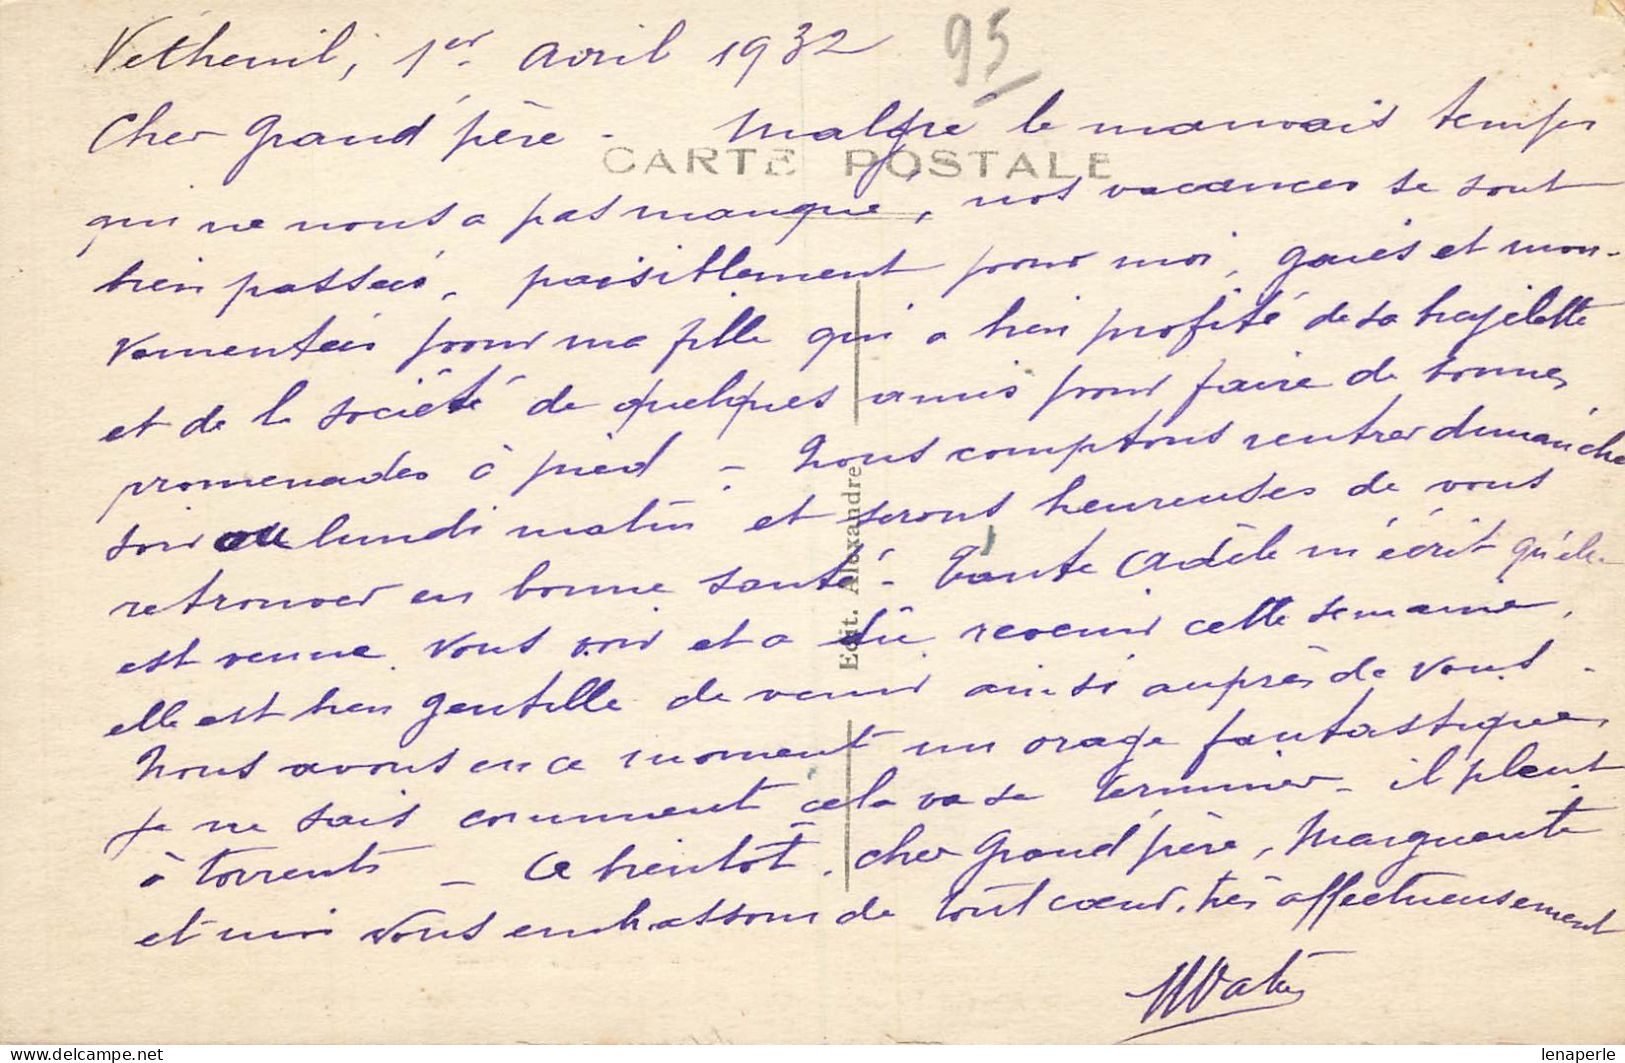 Vetheuil, 1er avril 1932
95
Cher Grand'père - Malgré le mauvais temps
CARTE POSTALE
qui ne nous a pas manqué, nos vacances se sont
bien passées, paisiblement pour moi, gaies et mou-
vementées pour ma fille qui a bien profité de sa
et de la société de quelques amis pour faire de bonnes
promenades à pied - Nous comptons rentrer dimanche
soir ou lundi matin et serons heureuses de vous
retrouver en bonne santé - Tante Adèle m'écrit qu'elle
est venue vous voir et a dû revenir cette semaine,
elle est bien gentille de venir ainsi auprès de vous -
Nous avons en ce moment un orage fantastique,
je ne sais comment cela va se terminer - il pleut
à torrents - A bientôt, cher Grand'père, Marguerite
et moi vous embrassons de tout cœur, très affectueusement
Edit. Alexandre
lenaperle